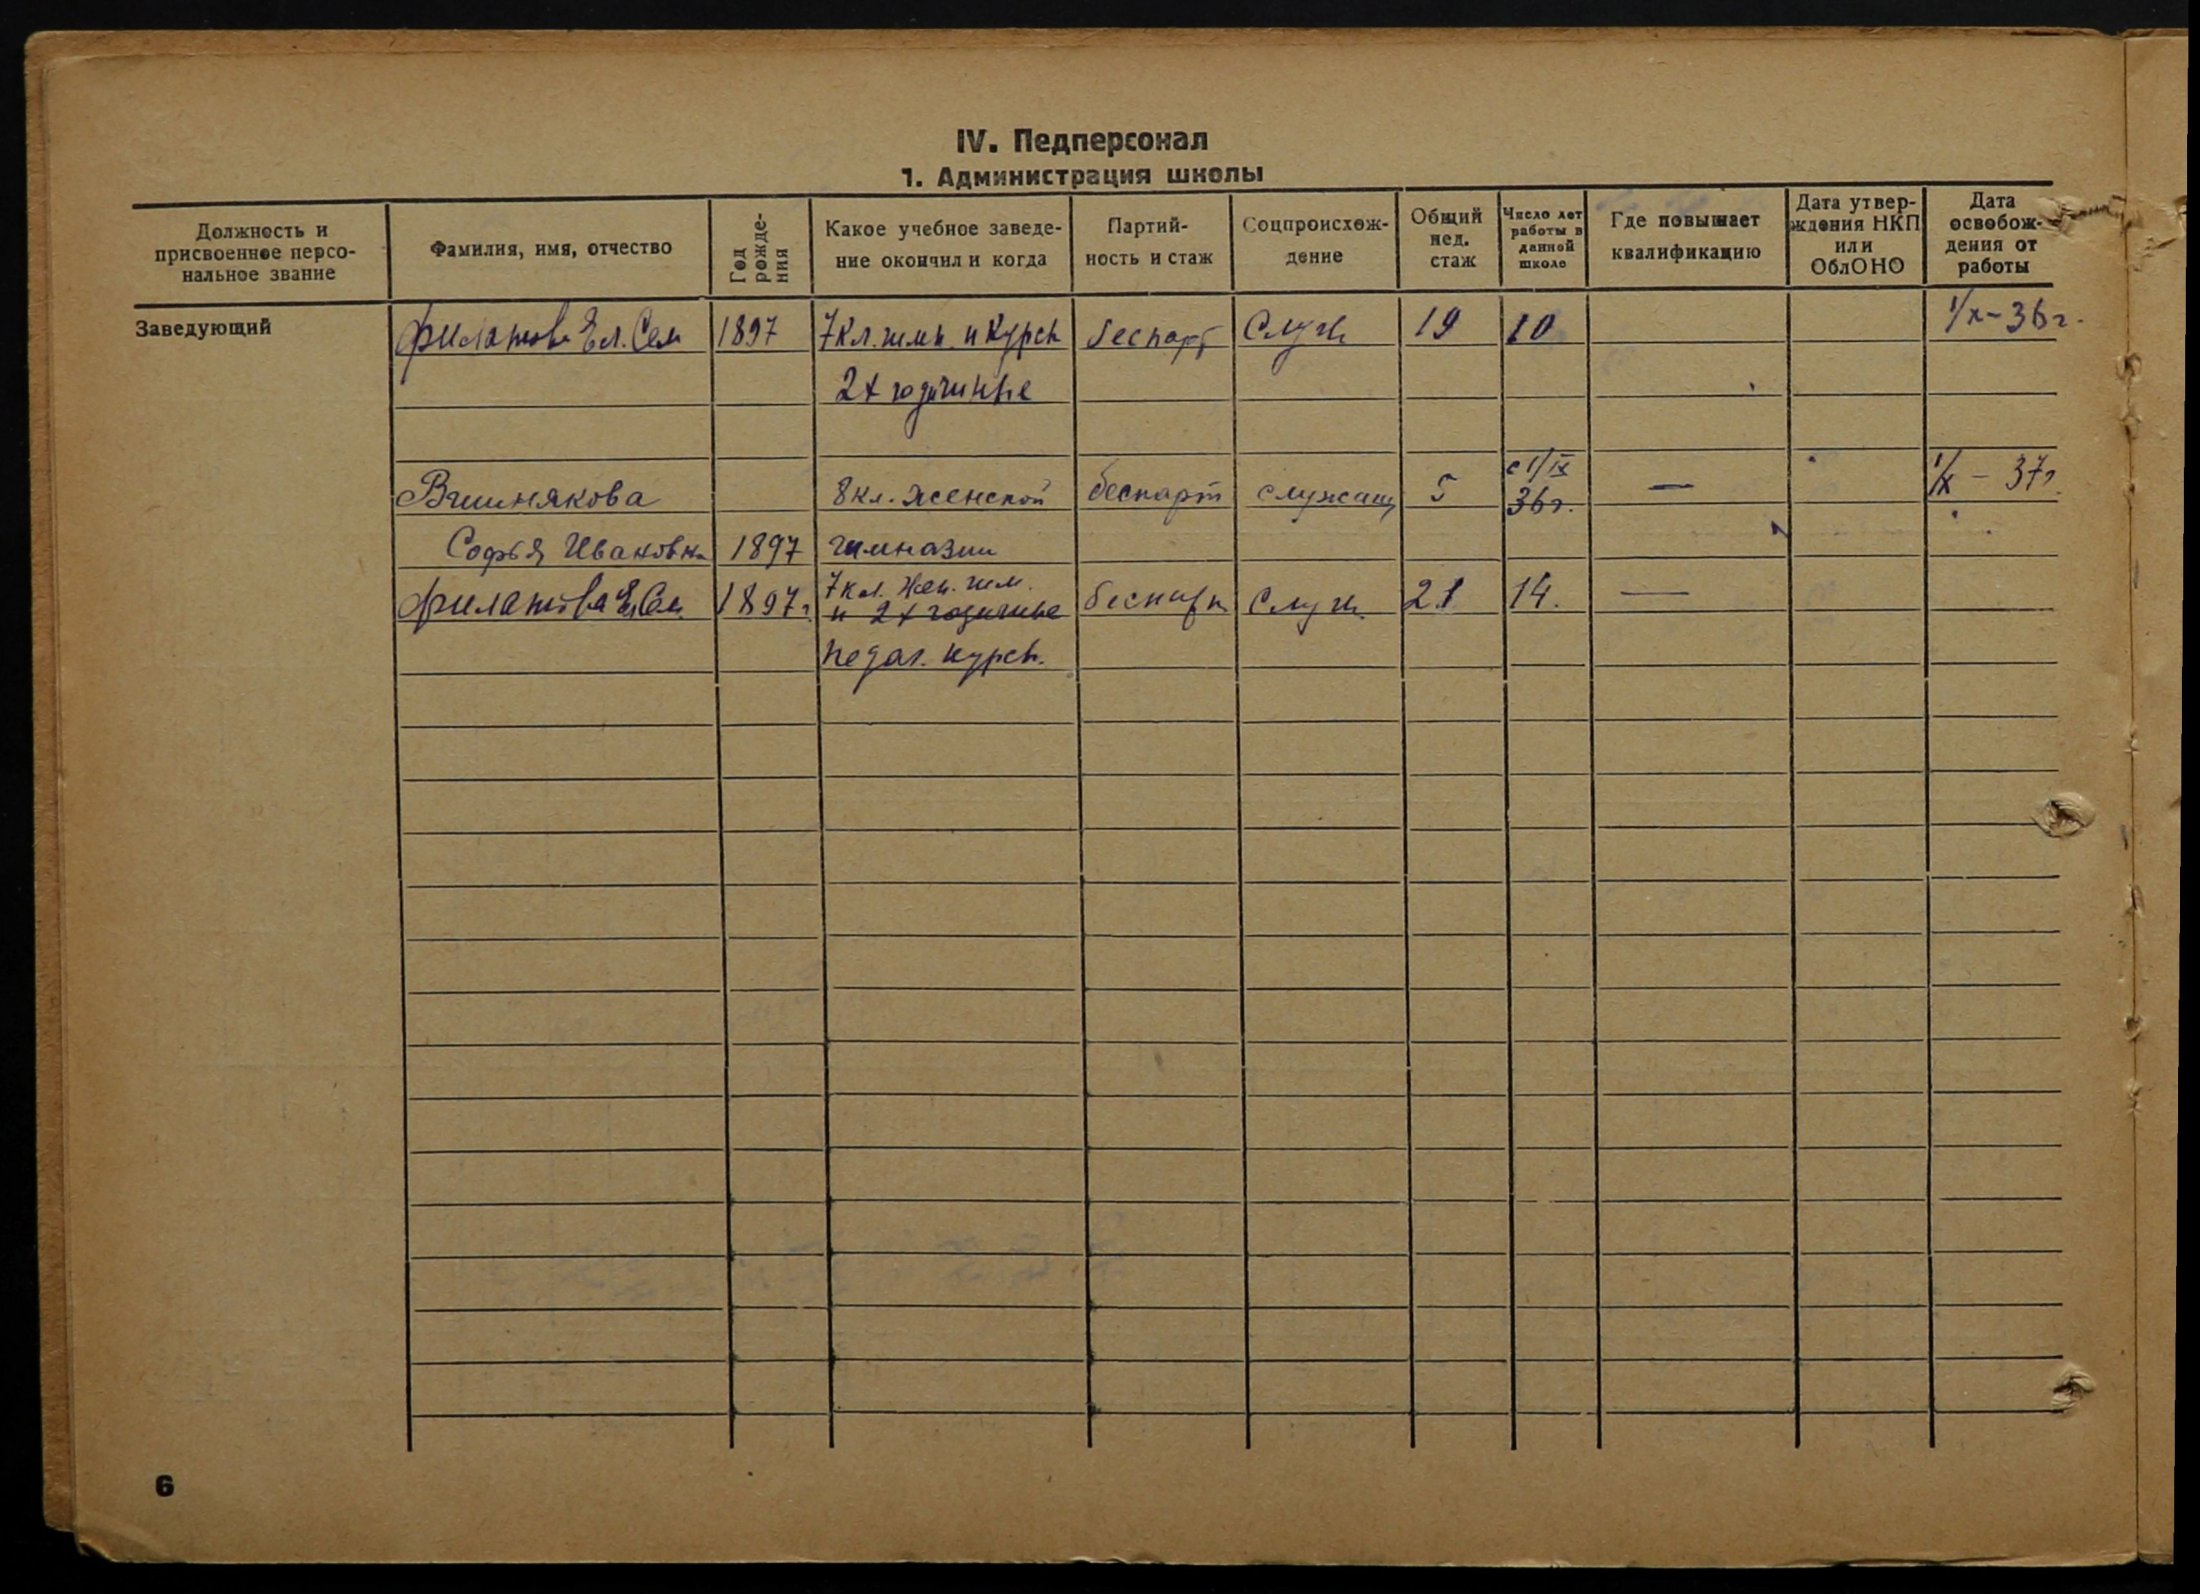 IV. Педперсонал
1. Администрация школы
Должность и присвоенное персо-нальное звание
Фамилия, имя, отчество
Год рожде-ния
Какое учебное заведе-ние окончил и когда
Партий-ность и стаж
Соцпроисхож-дение
Общий пед. стаж
Число лет работы в данной школе
Где повышает квалификацию
Дата утвер-ждения НКП или ОблОНО
Дата освобож-дения от работы
Заведующий Филатова Ел. Сем 1897 7 кл. гимн. и курсы беспарт Служ 19 10 1/X-36г.
2х годичные
Вишнякова 8 кл. женской беспарт служащ 5 с 1/IX 36г. — 1/X - 37г.
Софья Ивановн 1897 гимназии
Филатова Ел Сем 1897г. 7 кл. жен. гим. и 2х годичные беспарт Служ. 21 14. —
педаг. курсы.
6